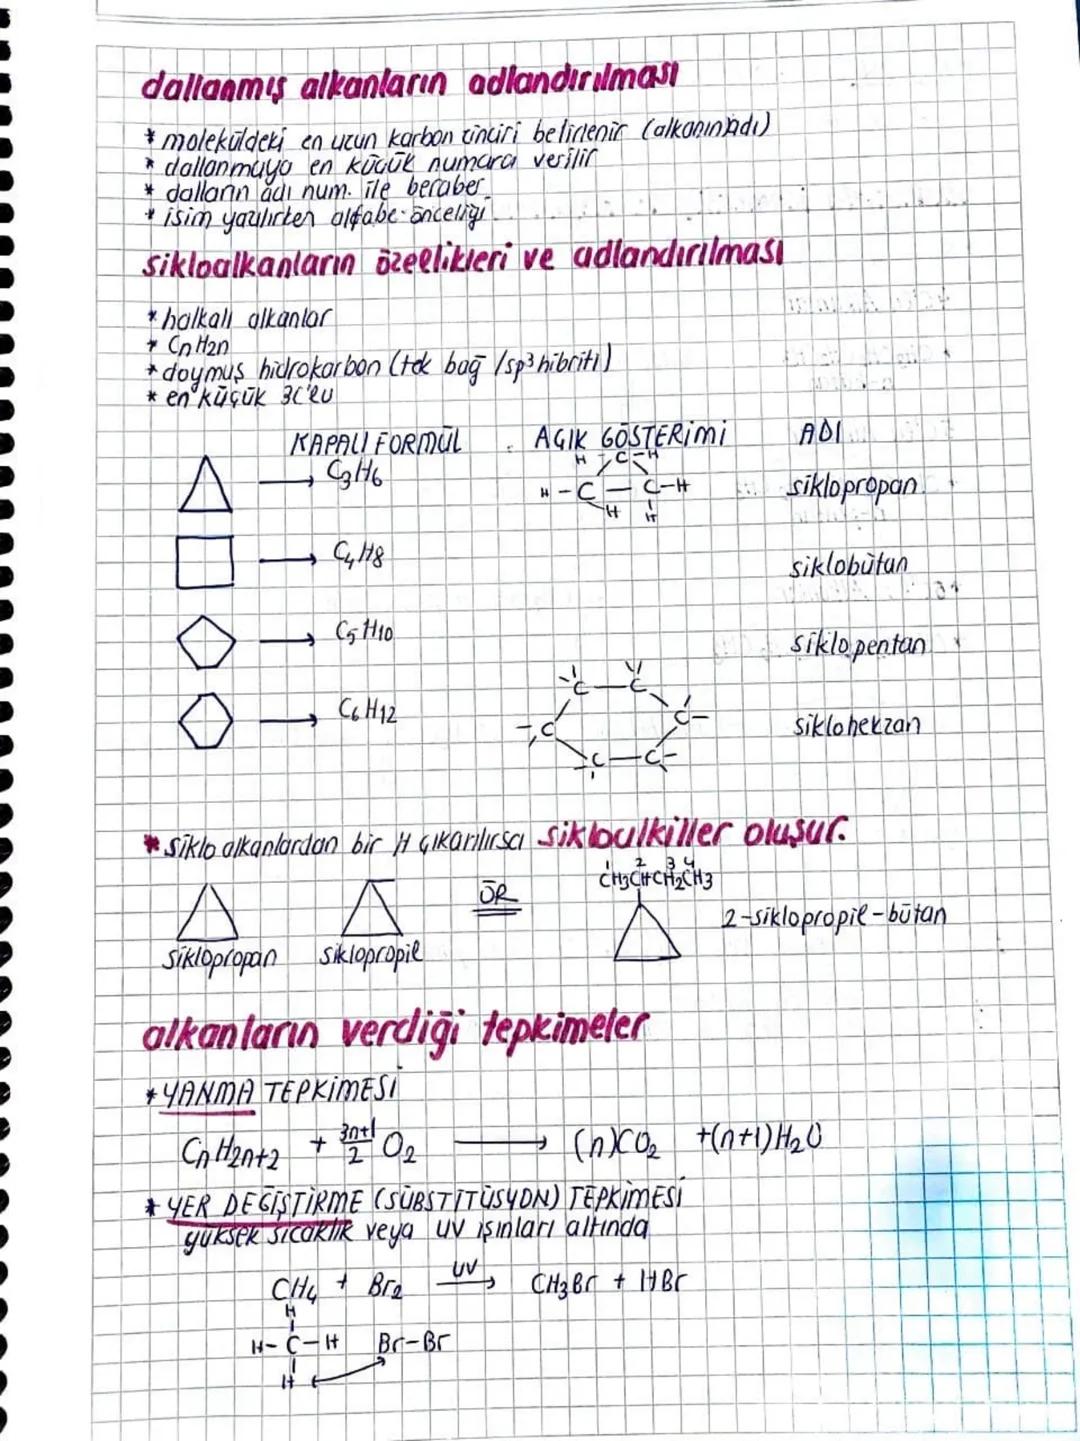 dallanmış alkanların adlandırılması
* moleküldeki en uzun karbon zinciri belirlenir (alkanın adı)
* dallanmaya en küçük numara verilir
* dalların adı num. ile beraber
* isim yazılırken alfabe önceliği
sikloalkanların özellikleri ve adlandırılması
* halkalı alkanlar
* CnH2n
* doymuş hidrokarbon (tek bağ /sp³ hibriti)
* en küçük 3C'lu
KAPALI FORMÜL AÇIK GÖSTERİMİ ADI
C3H6 siklopropan
H C-H
H-C-C-H
H H
C4H8 siklobütan
C5H10 siklopentan
C6H12 siklohekzan
C-C
C C
C-C
* siklo alkanlardan bir H çıkarılırsa sikloalkiller oluşur.
1 2 3 4
ÖR CH3CHCH2CH3
2-siklopropil-bütan
siklopropan siklopropil
alkanların verdiği tepkimeler
* YANMA TEPKİMESİ
CnH2n+2 + 3n+1/2 O2 → (n)CO2 +(n+1)H2O
* YER DEĞİŞTİRME (SÜBSTİTÜSYON) TEPKİMESİ
yüksek sıcaklık veya UV ışınları altında
CH4 + Br2 UV→ CH3Br + HBr
H
H-C-H Br-Br
H